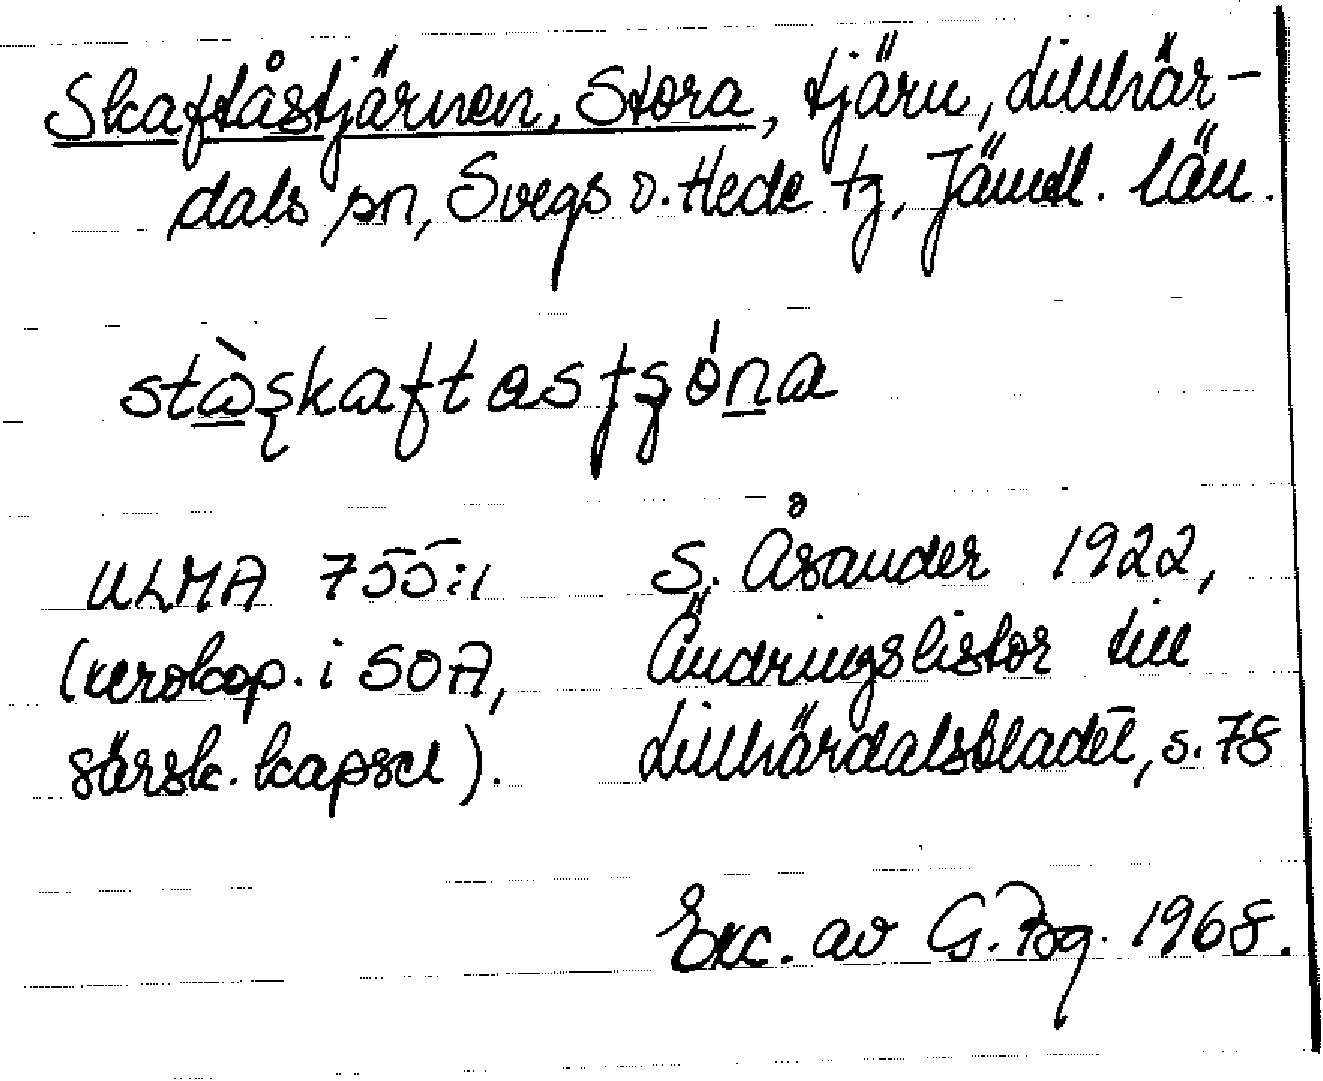 Skaftåstjärnen, Stora, tjärn, Lillhär-
dals sn, Svegs o. Hede tg, Jämtl. län.
stàʂkaftastʂóna
ULMA 755:1
(xerokop. i SOA,
särsk. kapsel).
S. Åsander 1922,
Ändringslistor till
Lillhärdalsbladet, s. 78
Exc. av G. Bg. 1968.